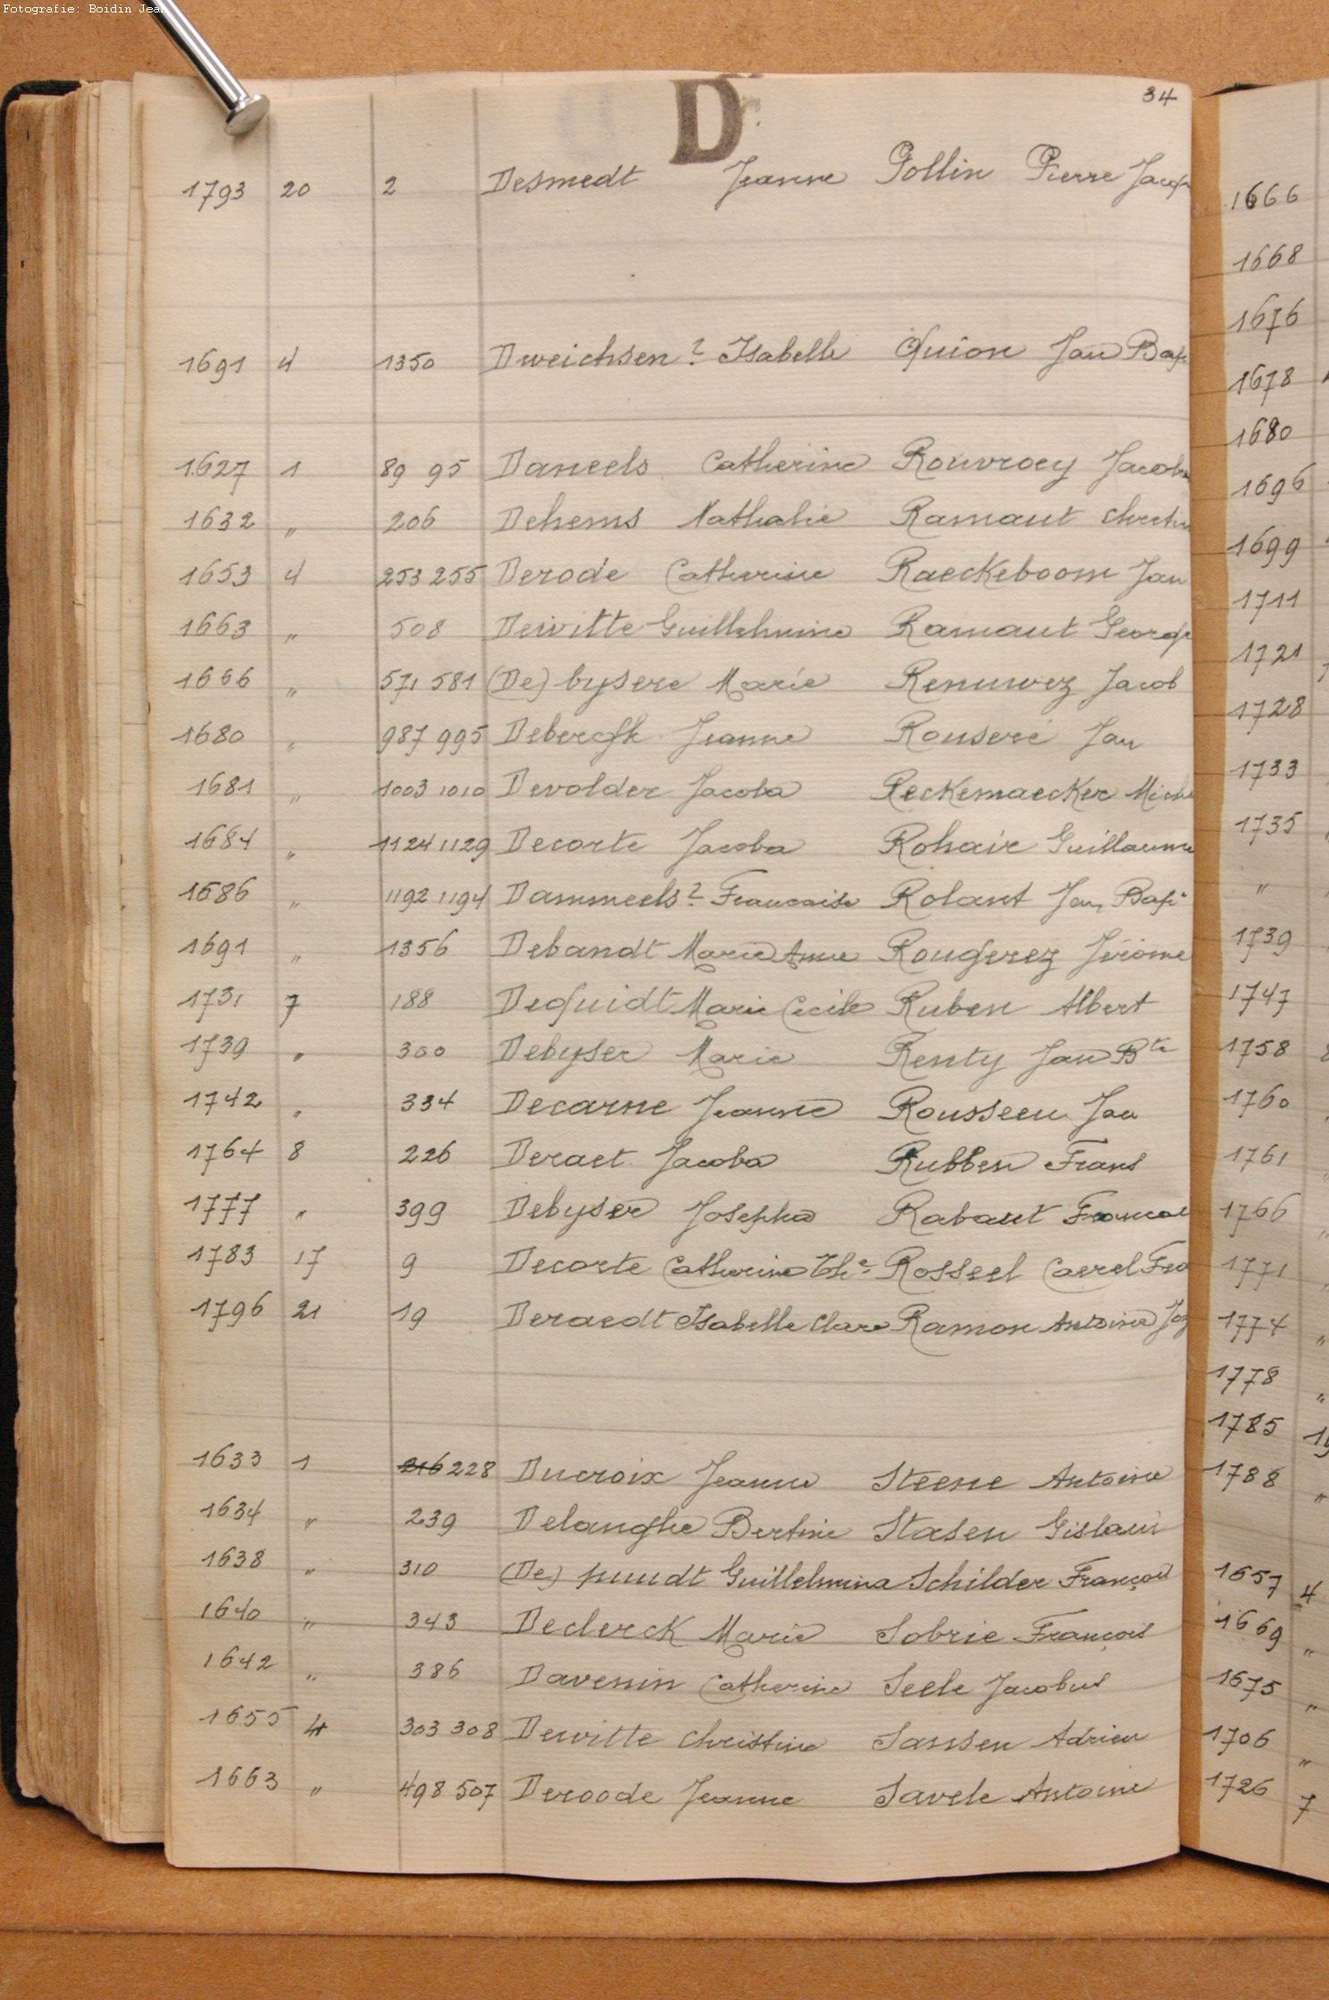 Fotografie: Boidin Jean
D
34
1793 20 2 Desmedt Jeanne Pollin Pierre Jacq
1691 4 1350 Dweichsen? Isabelle Quion Jan Bap
1627 1 89 95 Daneels Catherine Rouvroey Jacob
1632 " 206 Dehems Nathalie Ramaut Chret
1653 4 253 255 Derode Catherine Raeckeboom Jan
1663 " 508 Dewitte Guillelmine Ramaut George
1666 " 571 581 (De) bysere Marie Renuwez Jacob
1680 " 987 995 Debergh Jeanne Rouseré Jan
1681 " 1003 1010 Devolder Jacoba Reckemaecker Mich
1684 " 1124 1129 Decorte Jacoba Rohair Guillaume
1686 " 1192 1194 Dammeels? Francoise Rolant Jan Bapt
1691 " 1356 Debandt Marie Anne Rougerez Jérôme
1731 7 188 Dequidt Marie Cecile Ruben Albert
1739 " 300 Debyser Marie Renty Jan Bte
1742 " 334 Decarne Jeanne Rousseeu Jan
1764 8 226 Deraet Jacoba Rubben Frans
1777 " 399 Debyser Josepha Rabaut Francoi
1783 17 9 Decorte Catherine Thé Rosseel Caerel Fra
1796 21 19 Deraedt Isabelle Clare Ramon Antoine Jos
1633 1 216 228 Ducroix Jeanne Steene Antoine
1634 " 239 Delanghe Bertine Stasen Gislain
1638 " 310 (De) puudt Guillelmina Schilder François
1640 " 343 Declerck Marie Sobrie François
1642 " 386 Davenin Catherine Seele Jacobus
1655 4 303 308 Dewitte Christine Sansen Adrien
1663 " 498 507 Deroode Jeanne Savele Antoine
1666
1668
1676
1678
1680
1696
1699
1711
1721
1728
1733
1735
"
1739
1747
1758
1760
1761
1766
1771
1774 "
1778 "
1785
1788 "
1657 4
1669 "
1675 "
1706 "
1726 7